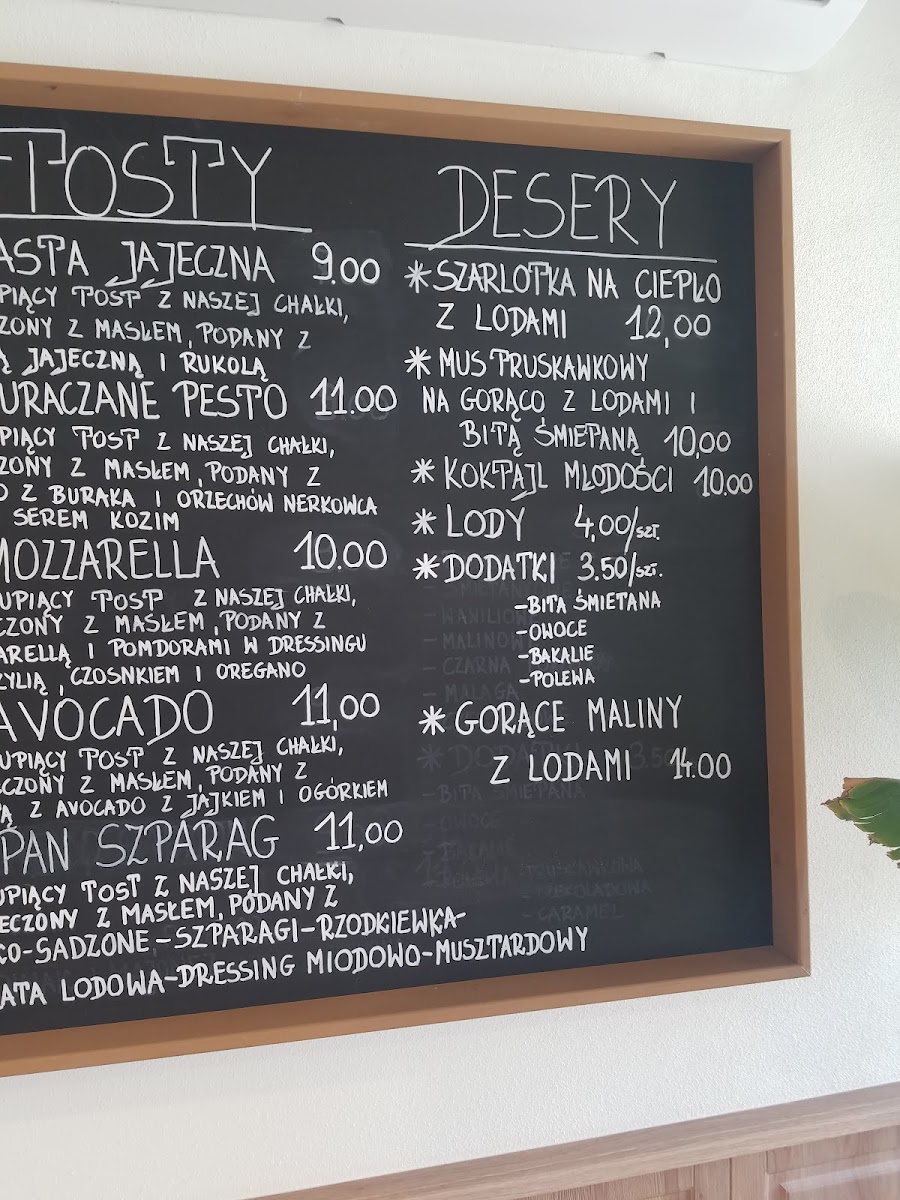 TOSTY
ASTA JAJECZNA 9.00
PIĄCY TOST Z NASZEJ CHAŁKI,
ZONY Z MASŁEM, PODANY Z
Ą JAJECZNĄ I RUKOLĄ
URACZANE PESTO 11.00
PIĄCY TOST Z NASZEJ CHAŁKI,
ZONY Z MASŁEM, PODANY Z
O Z BURAKA I ORZECHÓW NERKOWCA
SEREM KOZIM
MOZZARELLA 10.00
UPIĄCY TOST Z NASZEJ CHAŁKI,
CZONY Z MASŁEM, PODANY Z
ARELLĄ I POMDORAMI W DRESSINGU
ZYLIĄ, CZOSNKIEM I OREGANO
AVOCADO 11,00
UPIĄCY TOST Z NASZEJ CHAŁKI,
ECZONY Z MASŁEM, PODANY Z
Ą Z AVOCADO Z JAJKIEM I OGÓRKIEM
PAN SZPARAG 11,00
UPIĄCY TOST Z NASZEJ CHAŁKI,
ECZONY Z MASŁEM, PODANY Z
KO-SADZONE-SZPARAGI-RZODKIEWKA-
ATA LODOWA-DRESSING MIODOWO-MUSZTARDOWY
DESERY
* SZARLOTKA NA CIEPŁO
Z LODAMI 12,00
* MUS TRUSKAWKOWY
NA GORĄCO Z LODAMI I
BITĄ ŚMIETANĄ 10,00
* KOKTAJL MŁODOŚCI 10.00
* LODY 4,00/szt.
* DODATKI 3.50/szt.
-BITA ŚMIETANA
-OWOCE
-BAKALIE
-POLEWA
* GORĄCE MALINY
Z LODAMI 14.00